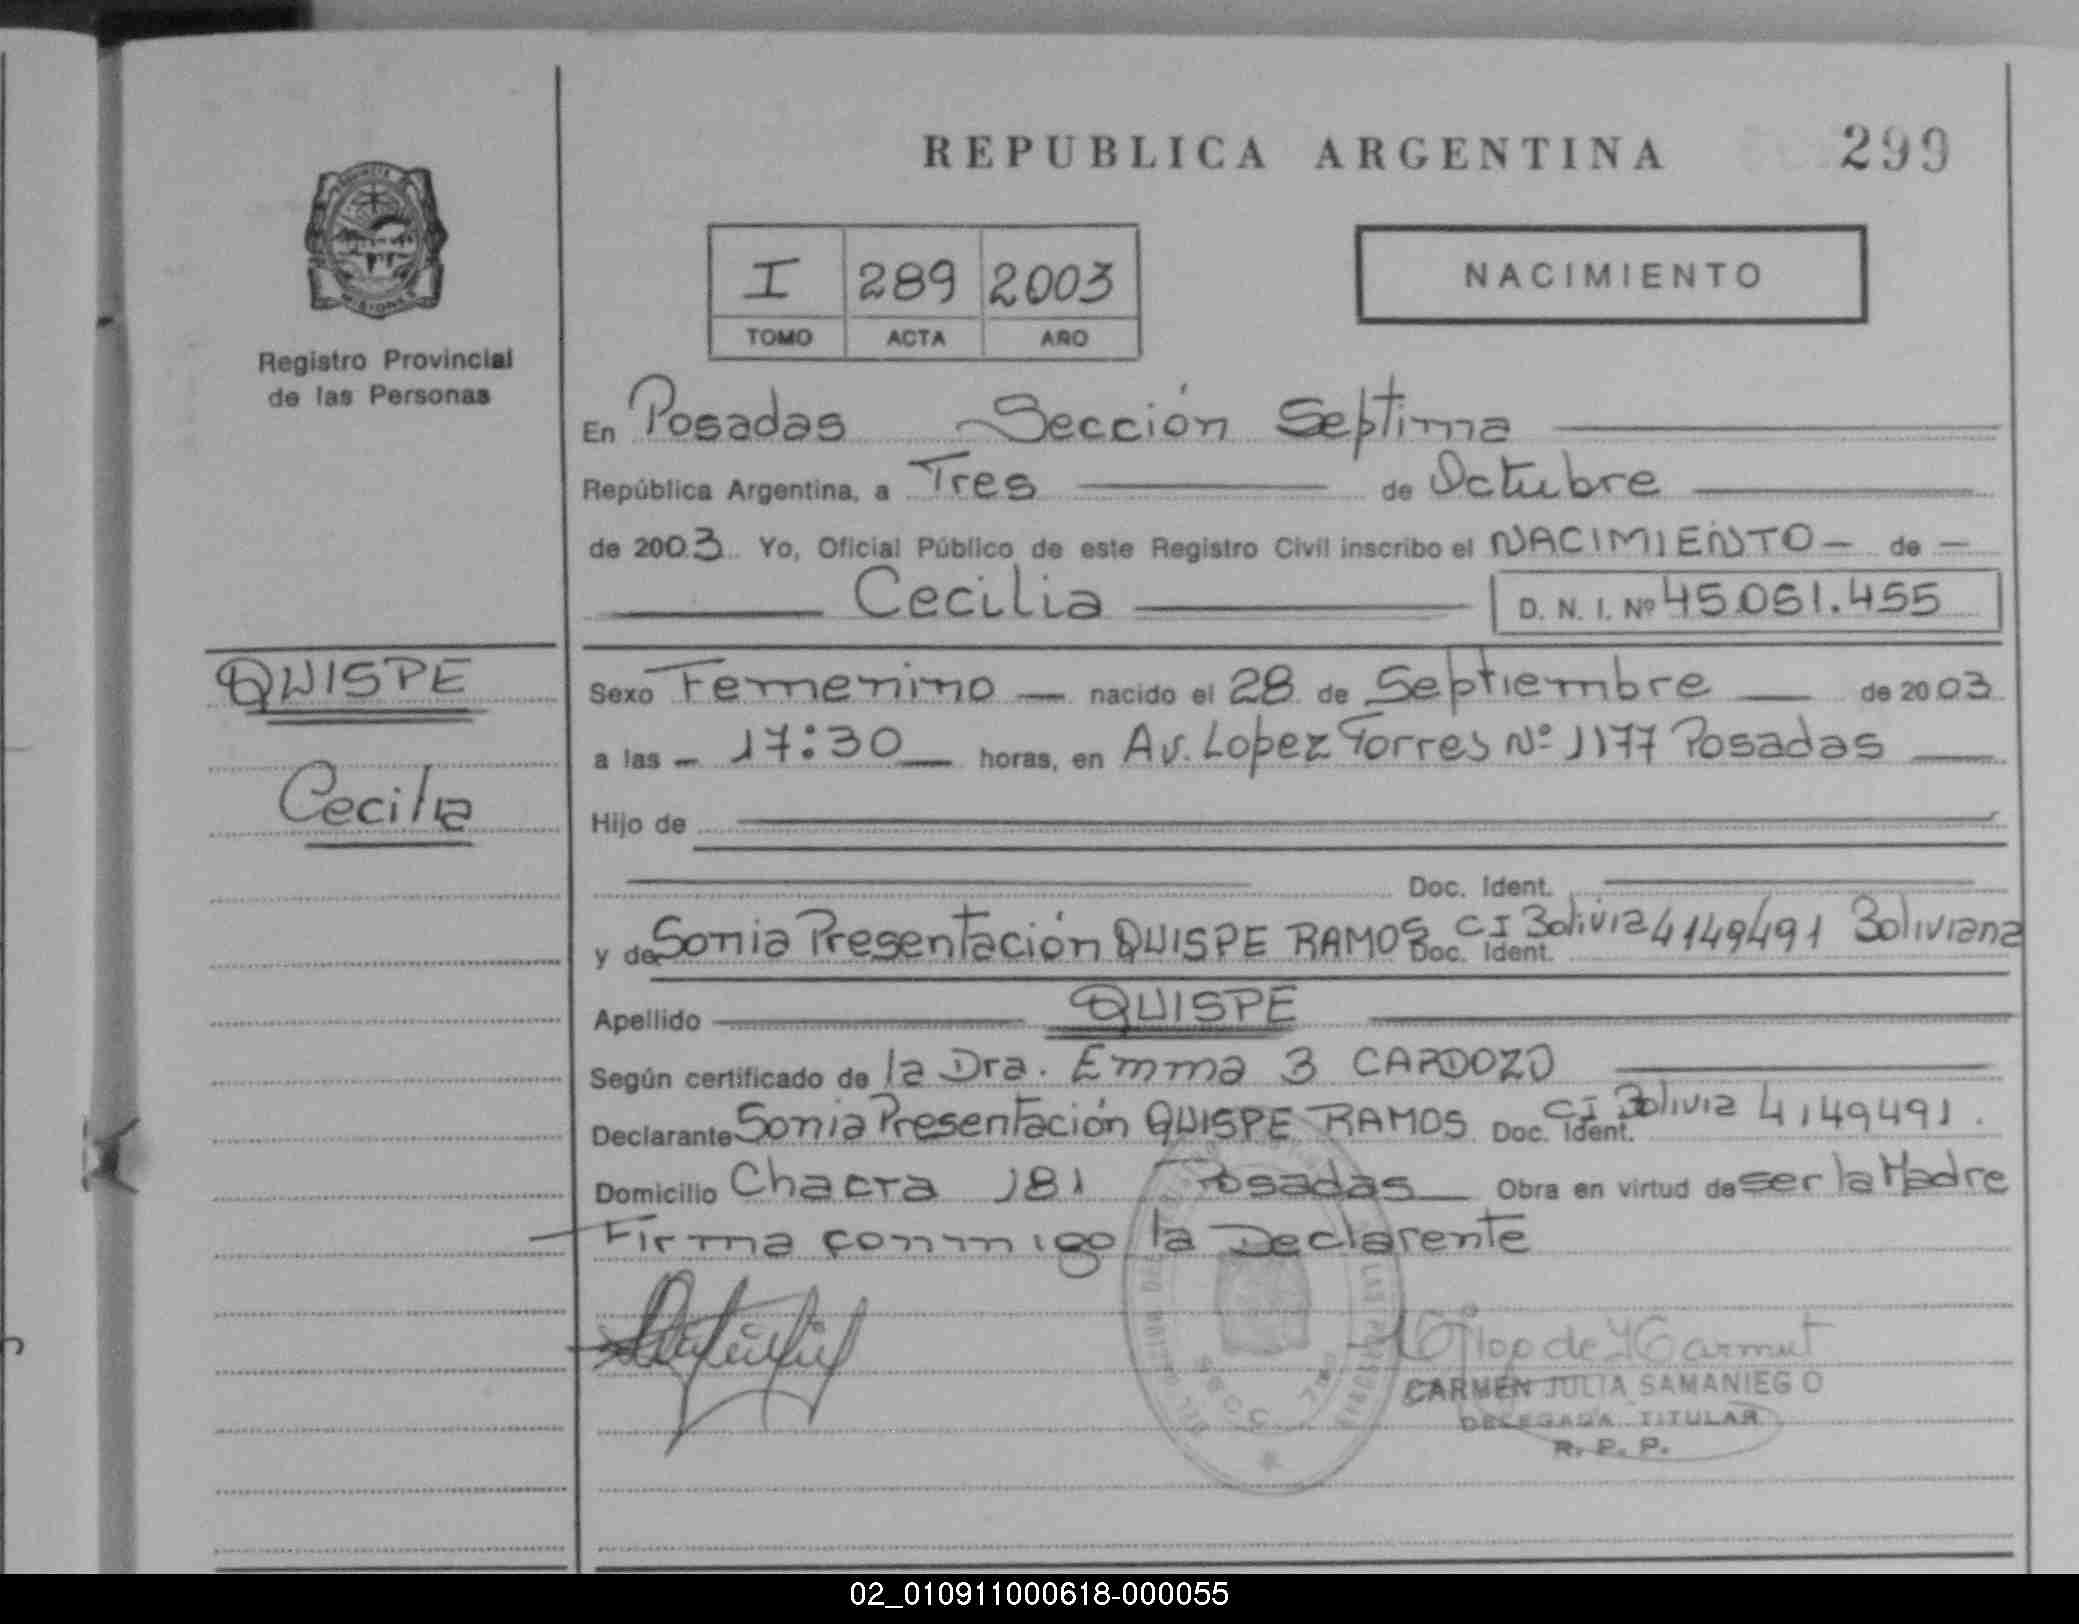 REPUBLICA ARGENTINA 299
I 289 2003
TOMO ACTA AÑO
NACIMIENTO
MISIONES
Registro Provincial
de las Personas
En Posadas Sección Septima
República Argentina, a Tres de Octubre
de 2003 Yo, Oficial Público de este Registro Civil inscribo el NACIMIENTO de
Cecilia D. N. I. Nº 45.061.455
QUISPE
Cecilia
Sexo Femenino nacido el 28 de Septiembre de 2003
a las 17:30 horas, en Av. Lopez Torres Nº 1177 Posadas
Hijo de
Doc. Ident.
y de Sonia Presentación QUISPE RAMOS Doc. Ident. CI Bolivia 4149491 Boliviana
Apellido QUISPE
Según certificado de la Dra. Emma B CARDOZO
Declarante Sonia Presentación QUISPE RAMOS Doc. Ident. CI Bolivia 4149491.
Domicilio Chacra 181 Posadas Obra en virtud de ser la Madre
Firma conmigo la Declarente
CARMEN JULIA SAMANIEGO
DELEGADA TITULAR
R. P. P.
02_010911000618-000055